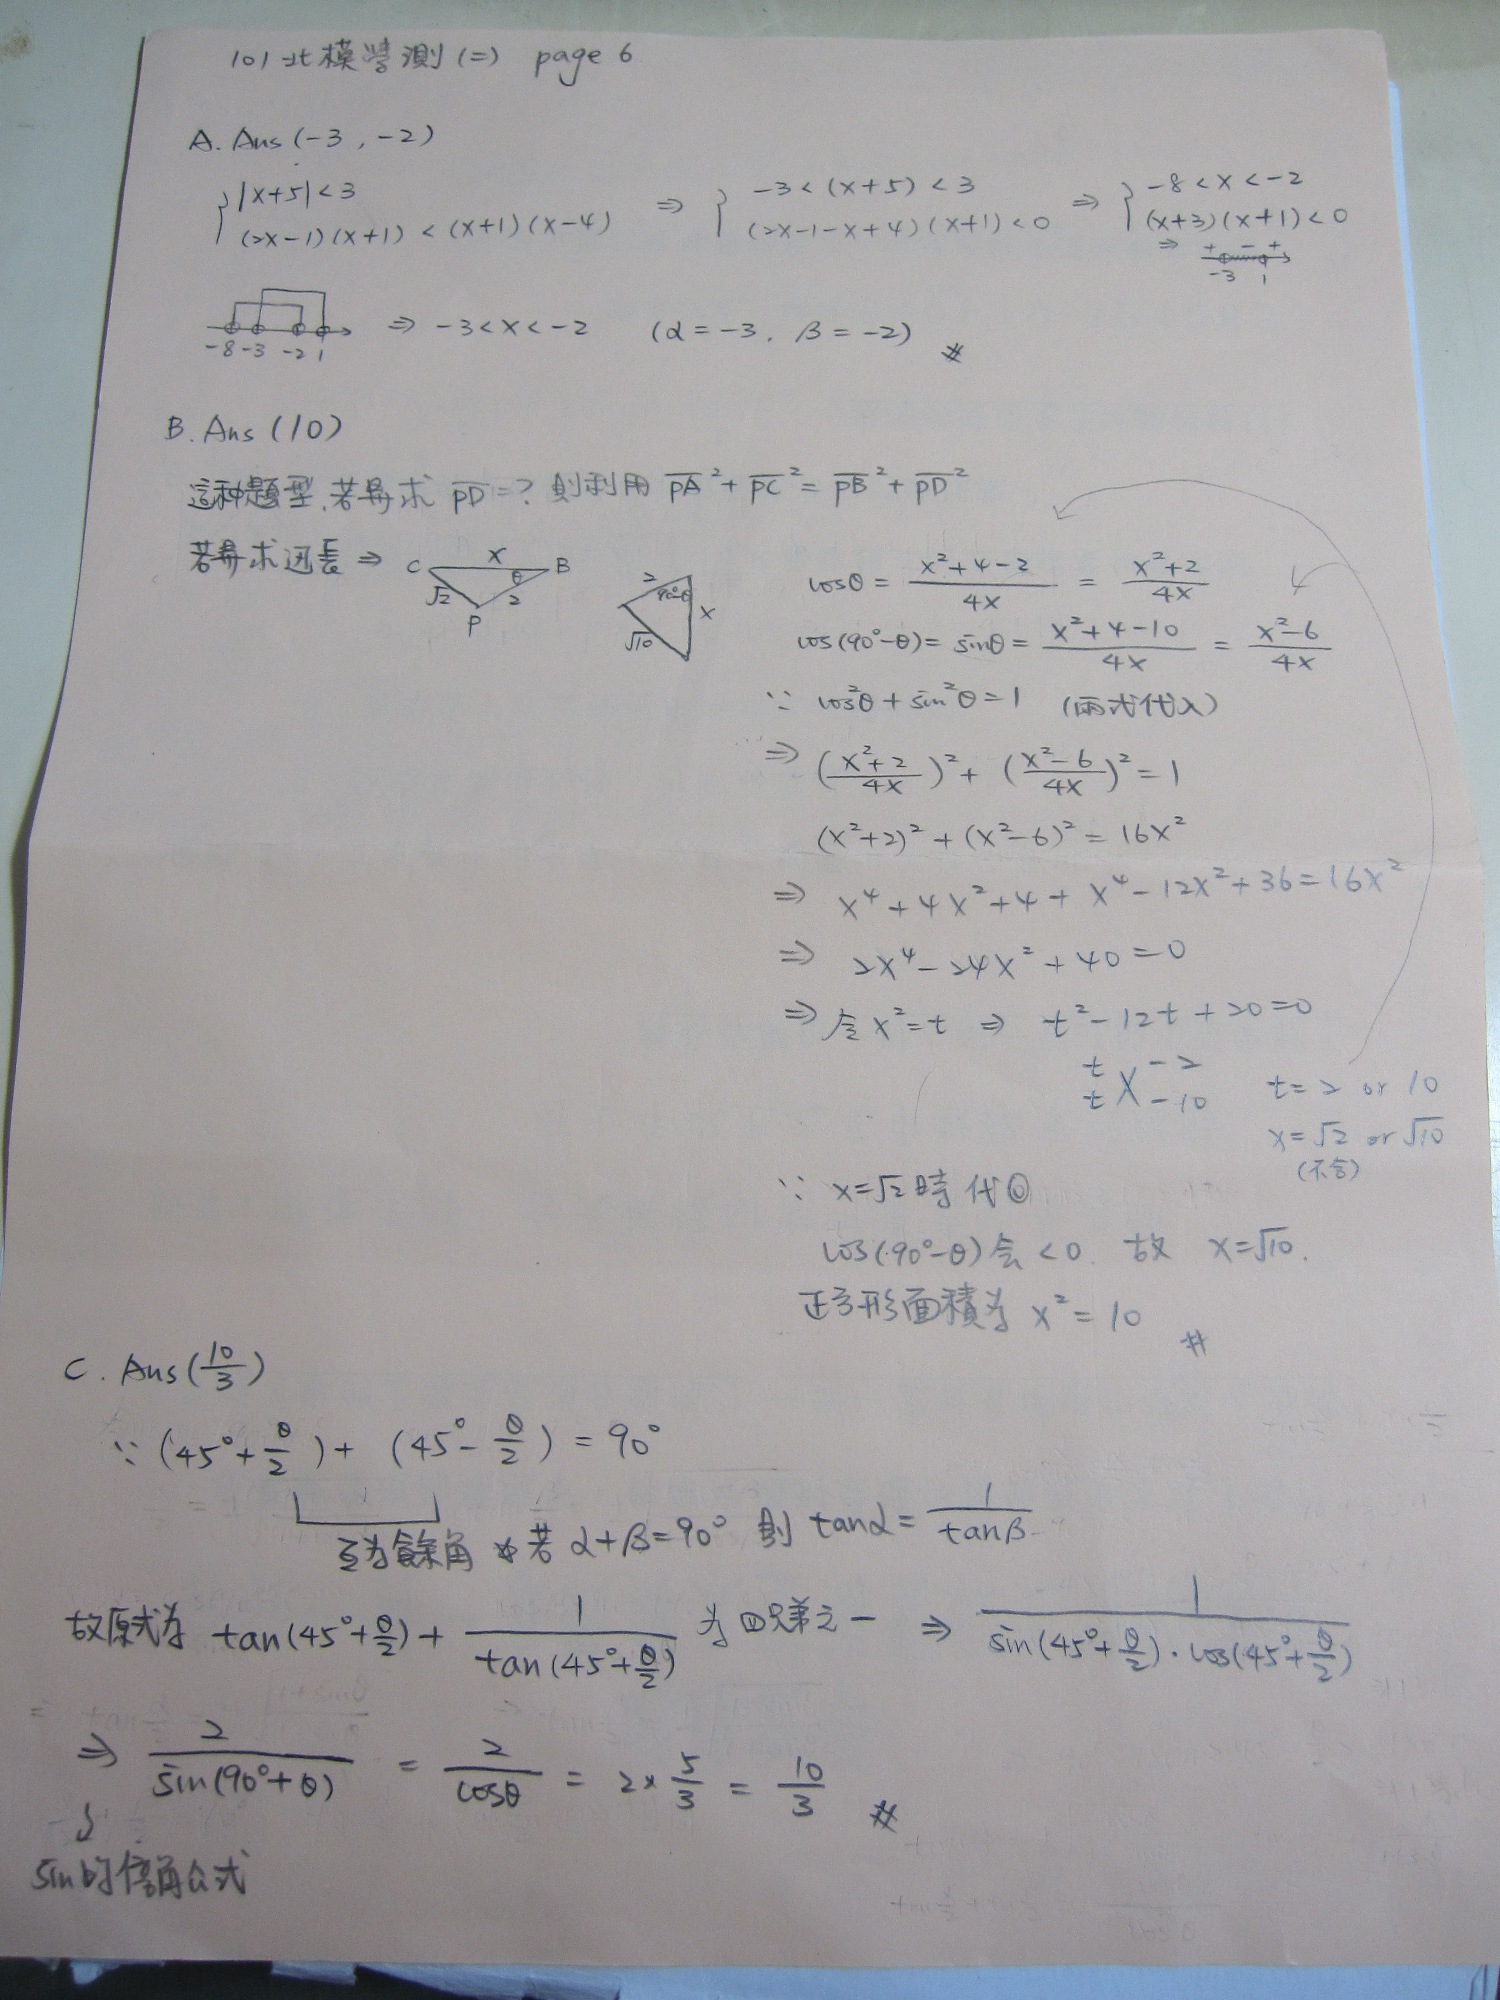 101北模學測(二) page 6
A. Ans(-3, -2)
{ |x+5|<3 ⇒ { -3<(x+5)<3 ⇒ { -8<x<-2
(2x-1)(x+1)<(x+1)(x-4) (2x-1-x+4)(x+1)<0 (x+3)(x+1)<0
⇒ + - +
-3 1
⇒ -3<x<-2 (α=-3, β=-2) #
-8 -3 -2 1
B. Ans(10)
這种題型,若是求 PD=? 則利用 PA²+PC²=PB²+PD²
若是求边長 ⇒ C x B θ √2 2 P
2 90°-θ x √10
cosθ = (x²+4-2)/4x = (x²+2)/4x
cos(90°-θ) = sinθ = (x²+4-10)/4x = (x²-6)/4x
∵ cos²θ+sin²θ=1 (兩式代入)
⇒ ((x²+2)/4x)² + ((x²-6)/4x)² = 1
(x²+2)² + (x²-6)² = 16x²
⇒ x⁴+4x²+4+x⁴-12x²+36=16x²
⇒ 2x⁴-24x²+40=0
⇒ 令 x²=t ⇒ t²-12t+20=0
t -2
t -10
t=2 or 10
x=√2 or √10
(不合)
∵ x=√2 時 代
cos(90°-θ) 会 <0. 故 x=√10.
正方形面積為 x²=10 #
C. Ans(10/3)
∵ (45°+θ/2)+(45°-θ/2)=90°
互為餘角 若 α+β=90° 則 tanα = 1/tanβ
故原式為 tan(45°+θ/2) + 1/tan(45°+θ/2) 为四兄弟之一 ⇒ 1/(sin(45°+θ/2)·cos(45°+θ/2))
⇒ 2/sin(90°+θ) = 2/cosθ = 2×5/3 = 10/3 #
sin的倍角公式